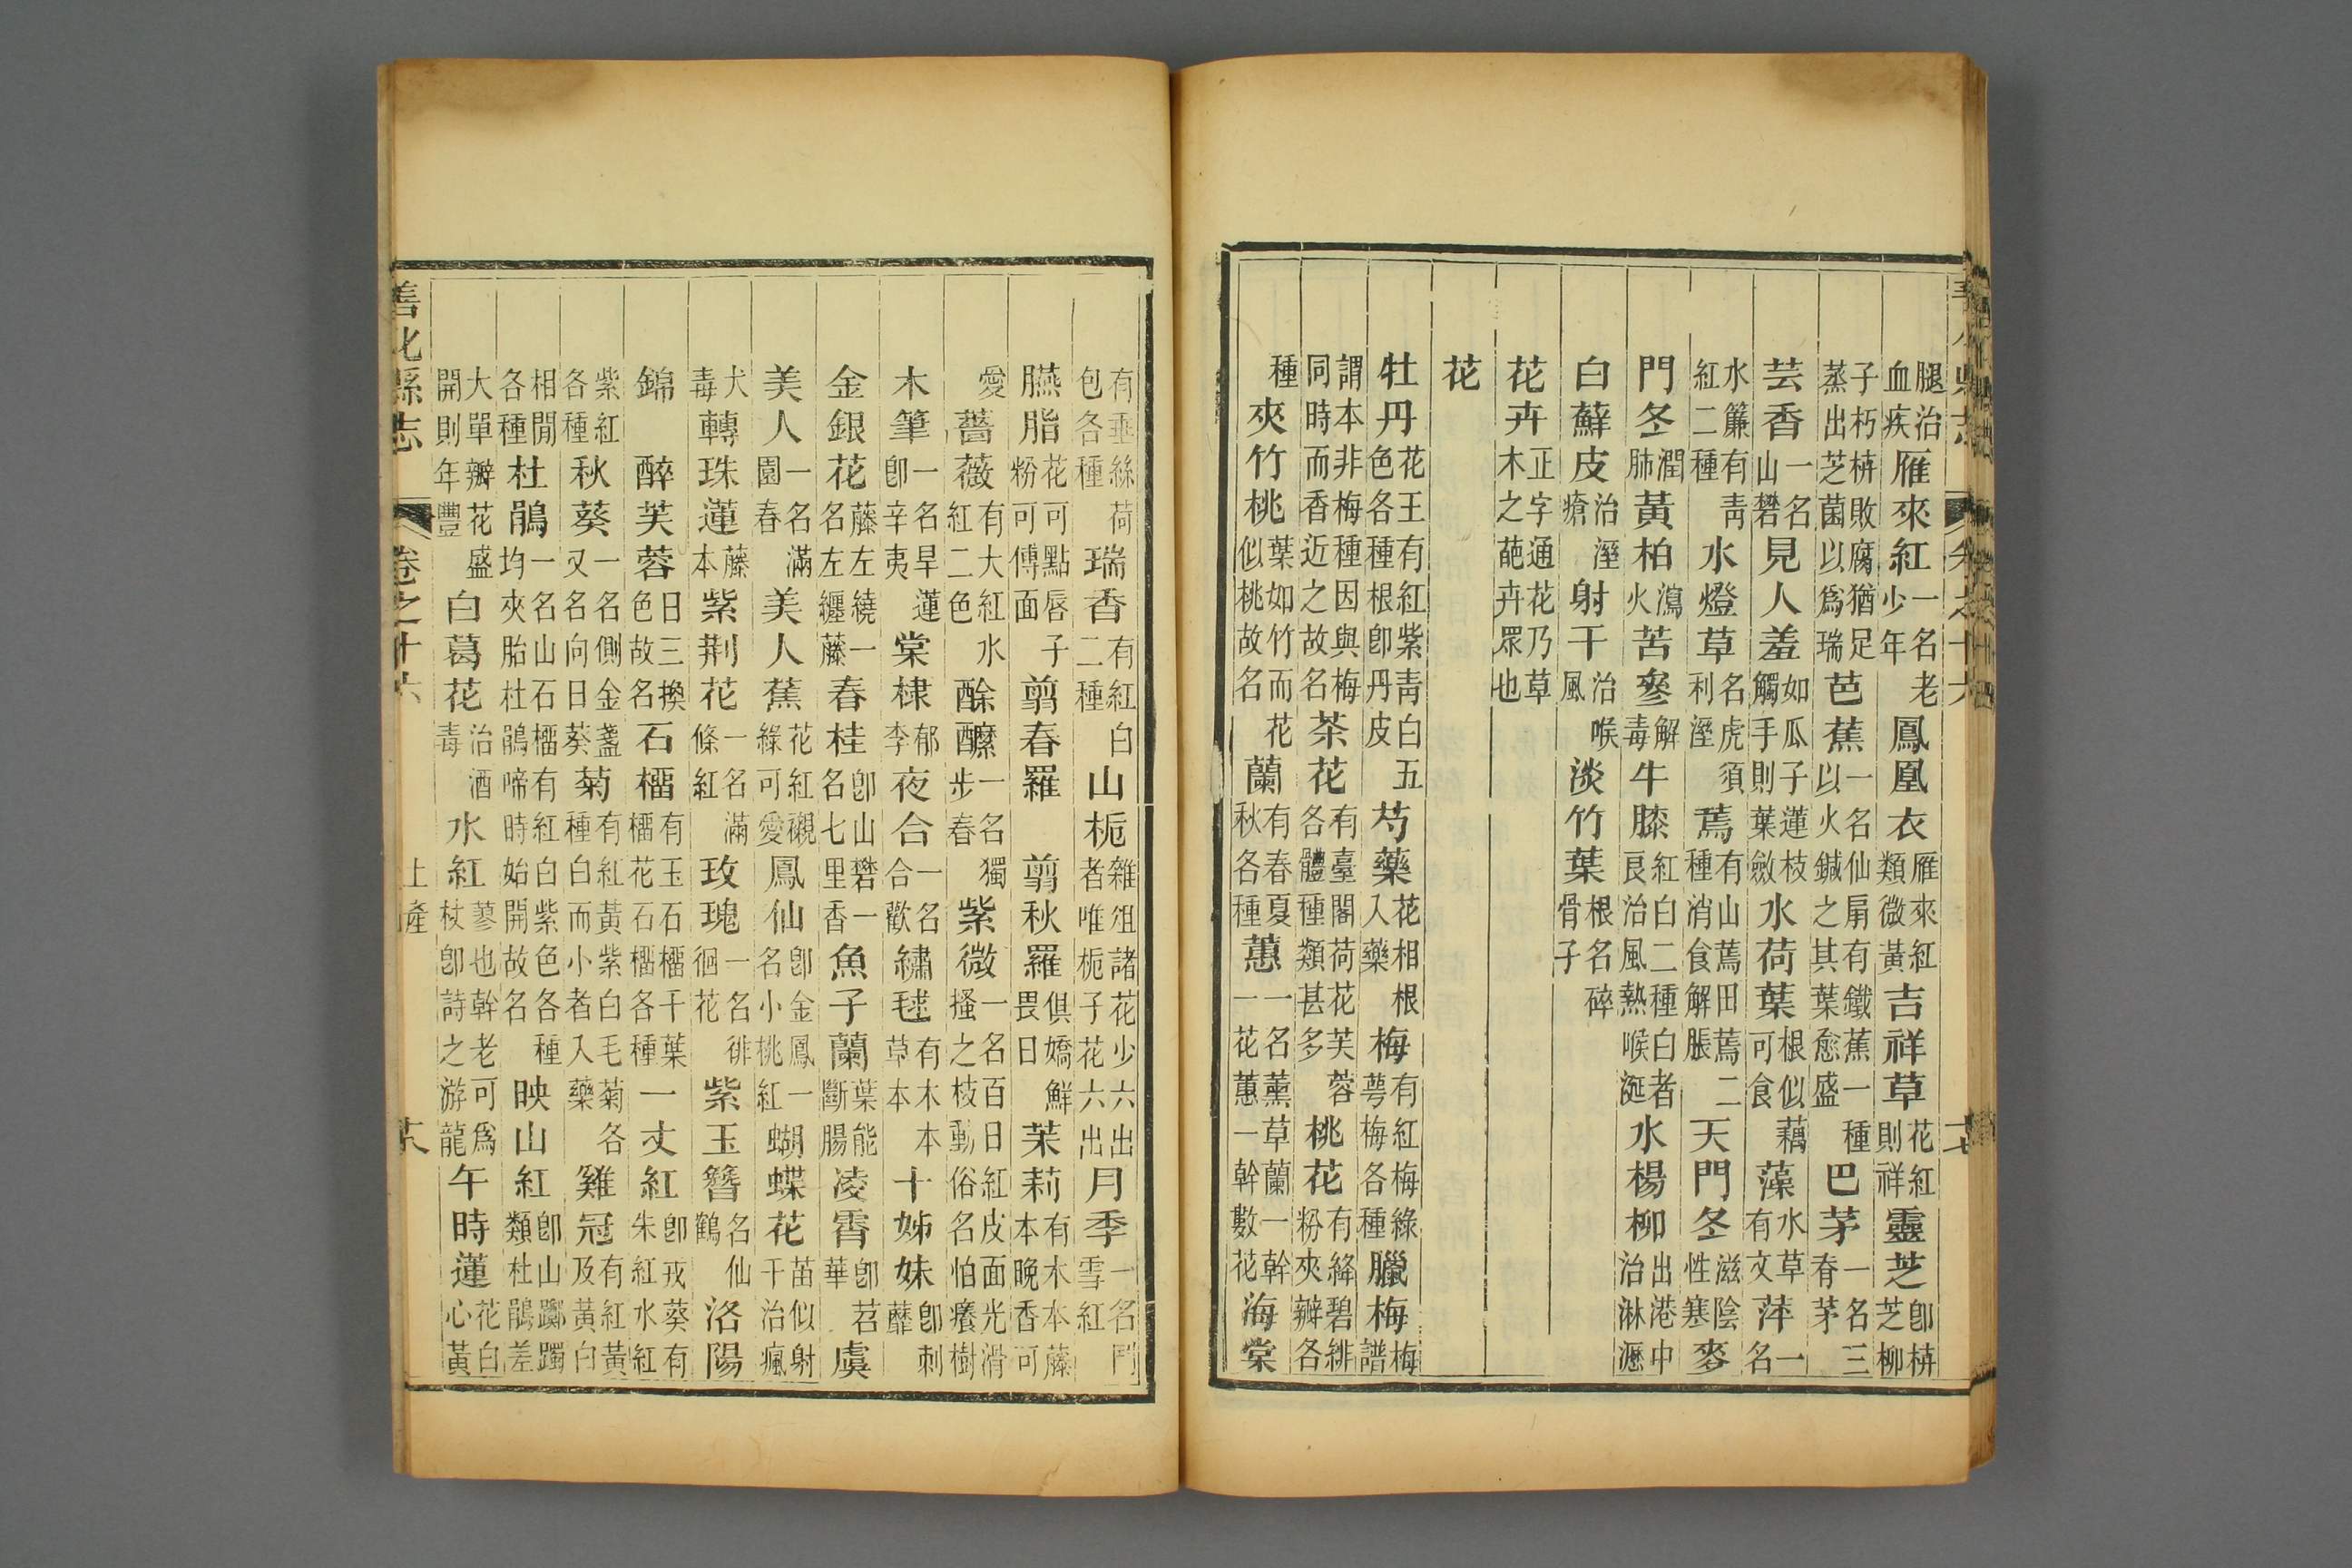 腿治血疾雁來紅一名老少年鳳凰衣雁來紅類微黃吉祥草花紅則祥靈芝卽栟芝柳
子朽栟敗腐猶足蒸出芝菌以爲瑞芭蕉一名仙扇有鐵蕉一種以火鍼之其葉愈盛巴茅一名三脊茅
芸香一名山礬見人羞如瓜子蓮枝觸手則葉斂水荷葉根似藕可食藻水草有文萍一名
水簾有靑紅二種水燈草名虎須利溼蔫有山蔫田蔫二種消食解脹天門冬滋陰性寒麥
門冬潤肺黃柏瀉火苦蔘解毒牛膝紅白二種白者良治風熱喉涎水楊柳出港中治淋瀝
白蘚皮治溼瘡射干治喉風淡竹葉根名碎骨子
花卉正字通花乃草木之葩卉眾也
花
牡丹花王有紅紫靑白五色各種根卽丹皮芍藥花相根入藥梅有紅梅綠萼梅各種臘梅梅譜
謂本非梅種因與梅同時而香近之故名茶花有臺閣荷花芙蓉各體種類甚多桃花有絳碧緋粉夾瓣各
種夾竹桃葉如竹而花似桃故名蘭有春夏秋各種蕙一名薰草蘭一幹一花蕙一幹數花海棠
有垂絲荷包各種瑞香有紅白二種山栀雜俎諸花少六出者唯栀子花六出月季一名鬥雪紅
臙脂花可點唇子粉可傅面剪春羅剪秋羅俱嬌鮮畏日茉莉有木本藤本晚香可
愛薔薇有大紅水紅二色酴醾一名獨步春紫微一名百日紅皮面光滑搔之枝動俗名怕癢樹
木筆一名旱蓮卽辛夷棠棣郁李夜合一名合歡繡毬有木本草本十姊妹卽刺蘼
金銀花藤左繞一名左纏藤春桂卽山礬一名七里香魚子蘭葉能斷腸凌霄卽苕華虞
美人一名滿園春美人蕉花紅襯綠可愛鳳仙卽金鳳一名小桃紅蝴蝶花苗似射干治瘋
犬毒轉珠蓮藤本紫荆花一名滿條紅玫瑰一名徘徊花紫玉簪名仙鶴洛陽
錦醉芙蓉日三換色故名石榴有玉石榴千葉榴花石榴各種一丈紅卽戎葵有朱紅水紅
紫紅各種秋葵一名側金盞又名向日葵菊有紅黃紫白毛菊各種白而小者入藥雞冠有紅黃及黃白
相閒各種杜鵑一名山石榴有紅白紫色各種均夾胎杜鵑啼時始開故名映山紅卽山躑躅類杜鵑差
大單瓣花盛開則年豐白葛花治酒毒水紅蓼也幹老可爲杖卽詩之游龍午時蓮花白心黃
善化縣志 卷之十六 土產 十八